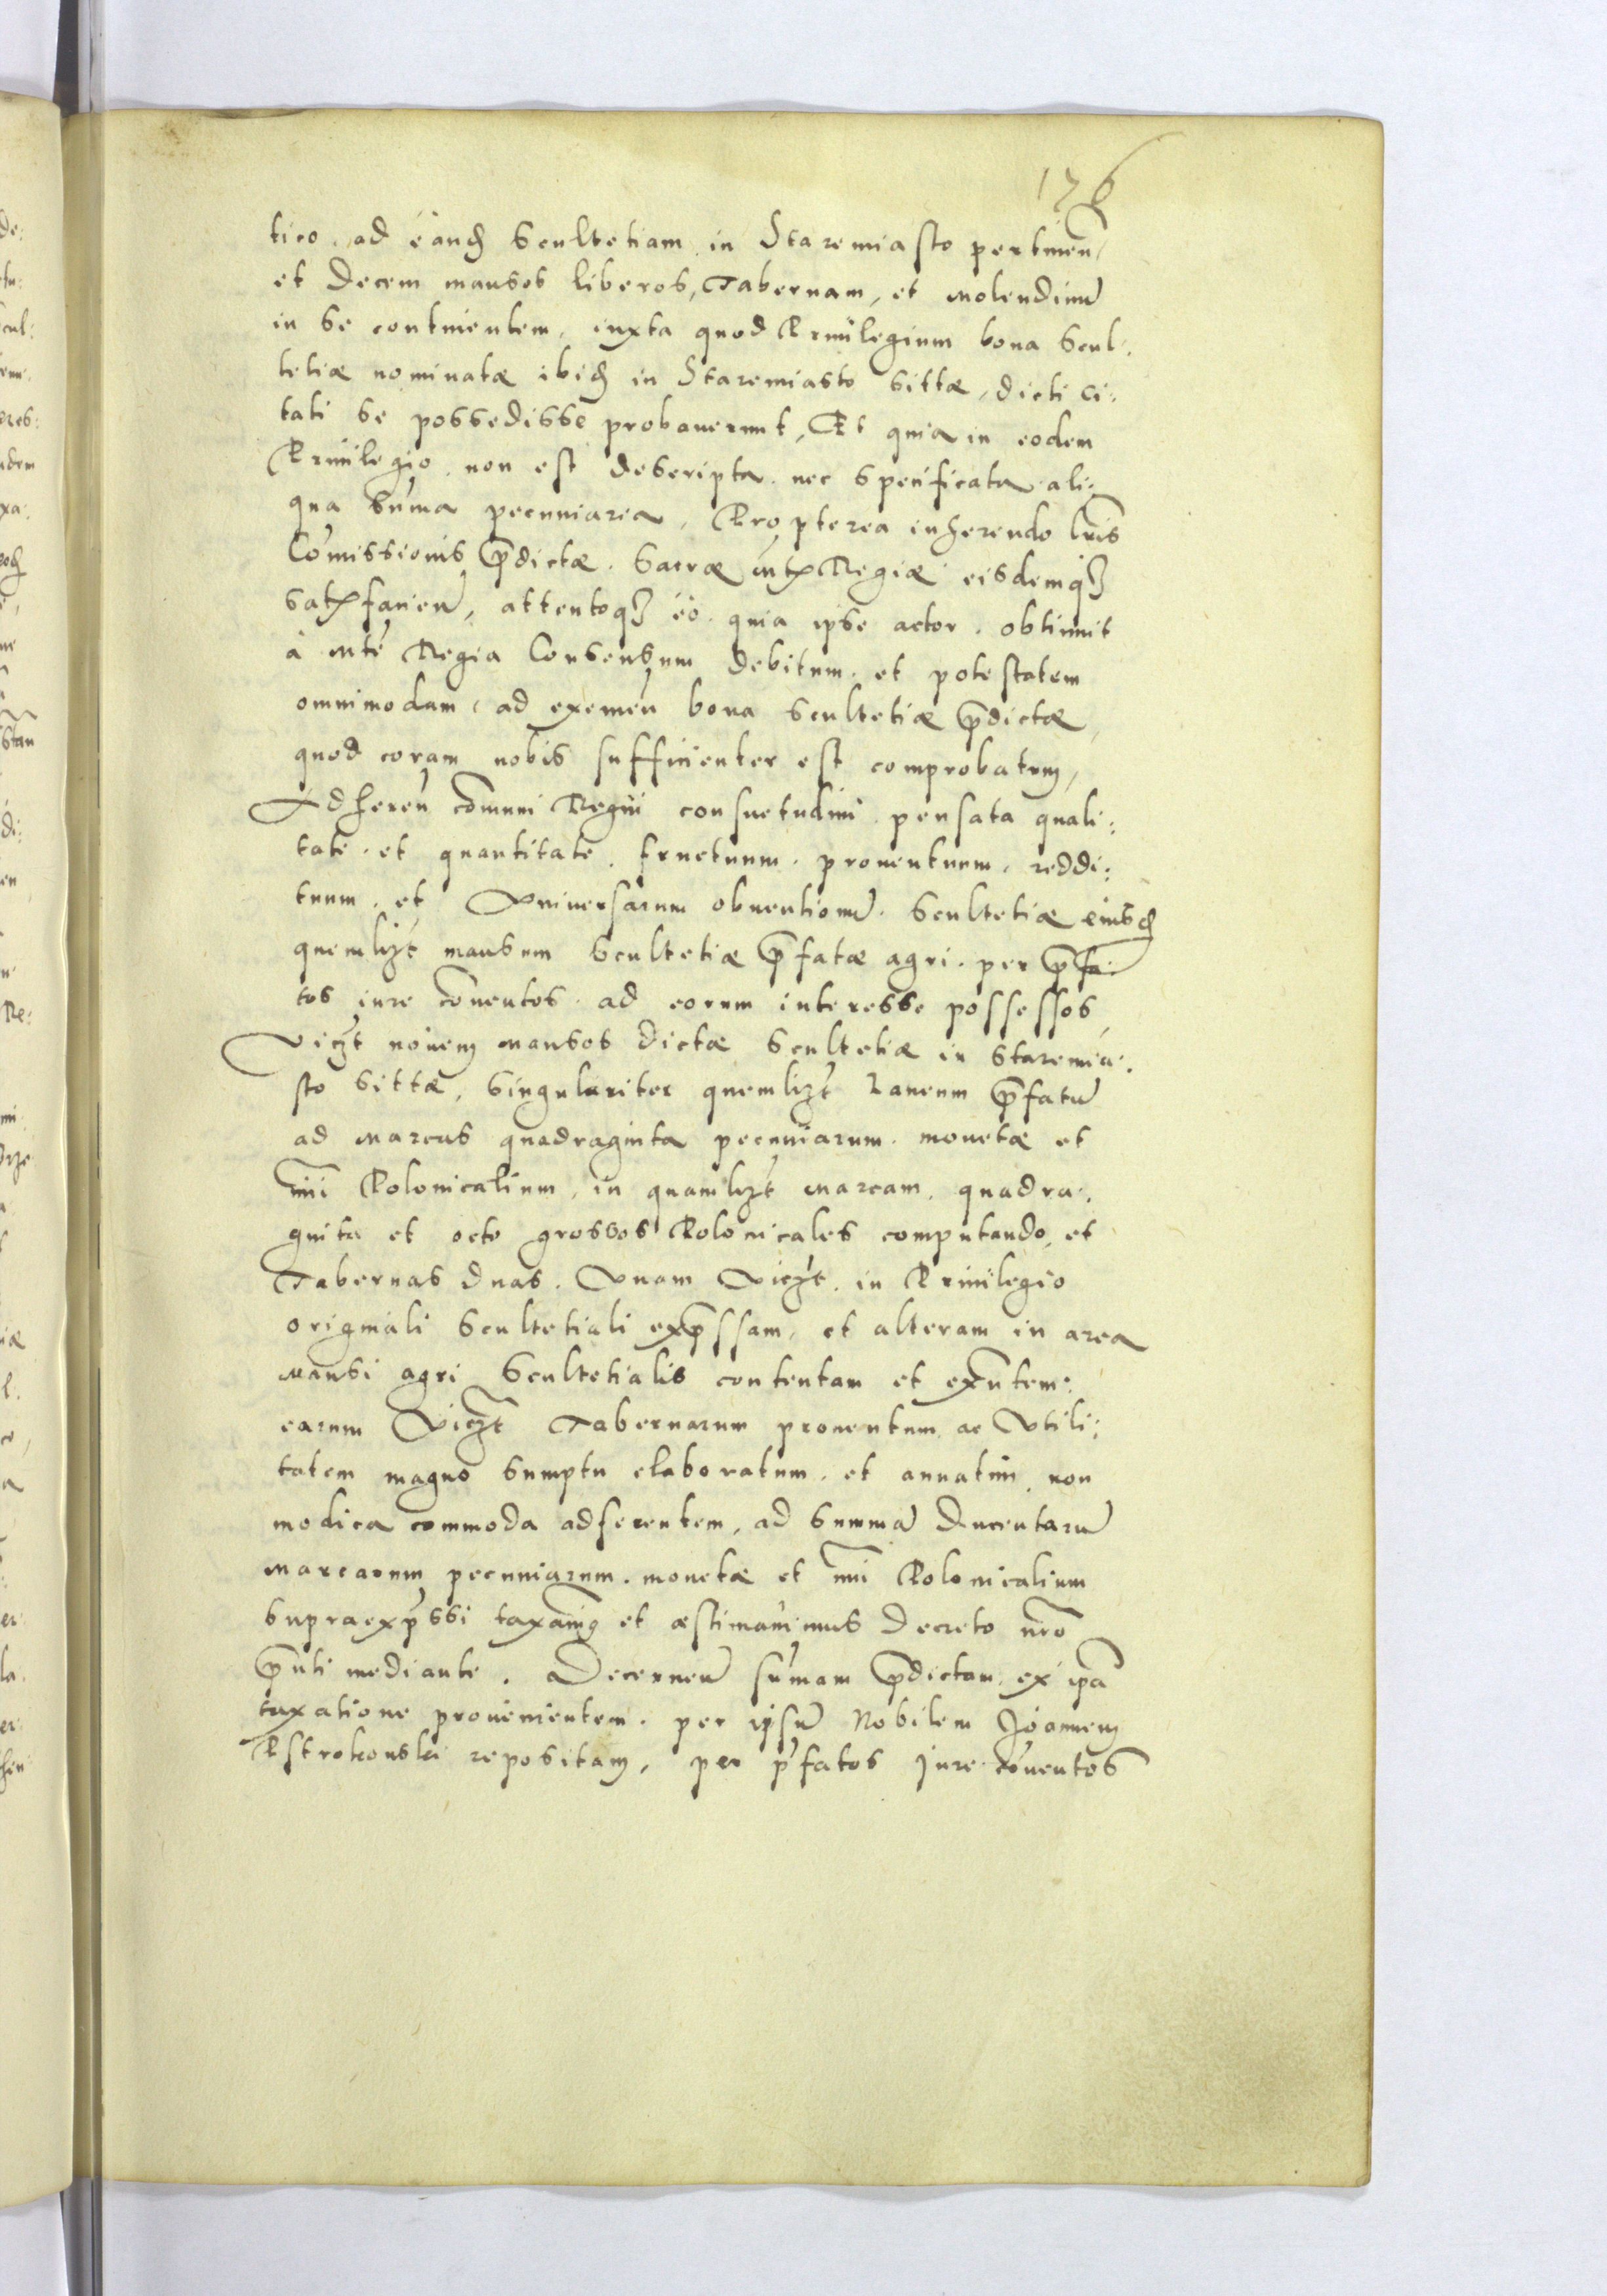 176
tico, ad eand Scultetiam in Staremiasto pertinen̄
et decem mansos liberos, Tabernam, et molendinū
in se continentem, iuxta quod Priuilegium bona Scul:
tetiæ nominatæ ibid in Staremiasto sittæ, dicti ci:
tati se possedisse probauerunt, Et quia in eodem
Priuilegio non est descripta nec specificata ali:
qua suma pecuniaria, Propterea inherendo lr̄is
Comissionis p̄dictæ Sacræ Mtis Regiæ eisdemq3
satisfacien̄, attentoq3 eo quia ipse actor obtinuit
à Mte Regia Consensum debitum et potestatem
omnimodam, ad exemen̄ bona Scultetiæ p̄dictæ,
quod coram nobis sufficienter est comprobatum,
Adheren̄ comuni Regni consuetudini pensata quali:
tate et quantitate fructuum prouentuum, reddi:
tuum et Vniuersarum obuentionū Scultetiæ eiusd
quemlizt mansum Scultetiæ p̄fatæ agri per p̄fa:
tos iure cōuentos ad eorum interesse possessos,
Viczt nouem mansos dictæ Scultetiæ in Staremia:
sto sittæ, singulariter quemlizt Laneum p̄fatū
ad marcas quadraginta pecuniarum monetæ et
nūi Polonicalium, in quamlizt marcam quadra:
ginta et octo grossos Polonicales computando, et
Tabernas duas. Vnam Viczt in Priuilegio
originali Scultetiali exp̄ssam, et alteram in area
mansi agri Scultetialis contentam et exn̄tem:
earum Viczt Tabernarum prouentum ac Vtili:
tatem magno sumptu elaboratum et annatim non
modica commoda adferentem, ad summā Ducentarū
marcarum pecuniarum monetæ et nūi Polonicalium
supraexp̄ssi taxauimꝰ et æstimauimus Decreto nr̄o
p̄nti mediante. Decernen̄ sumam p̄dictam ex ipā
taxatione prouenientem per ipsū Nobilem Joannem
Pstrokonski repositam, per p̄fatos Jure cōuentos